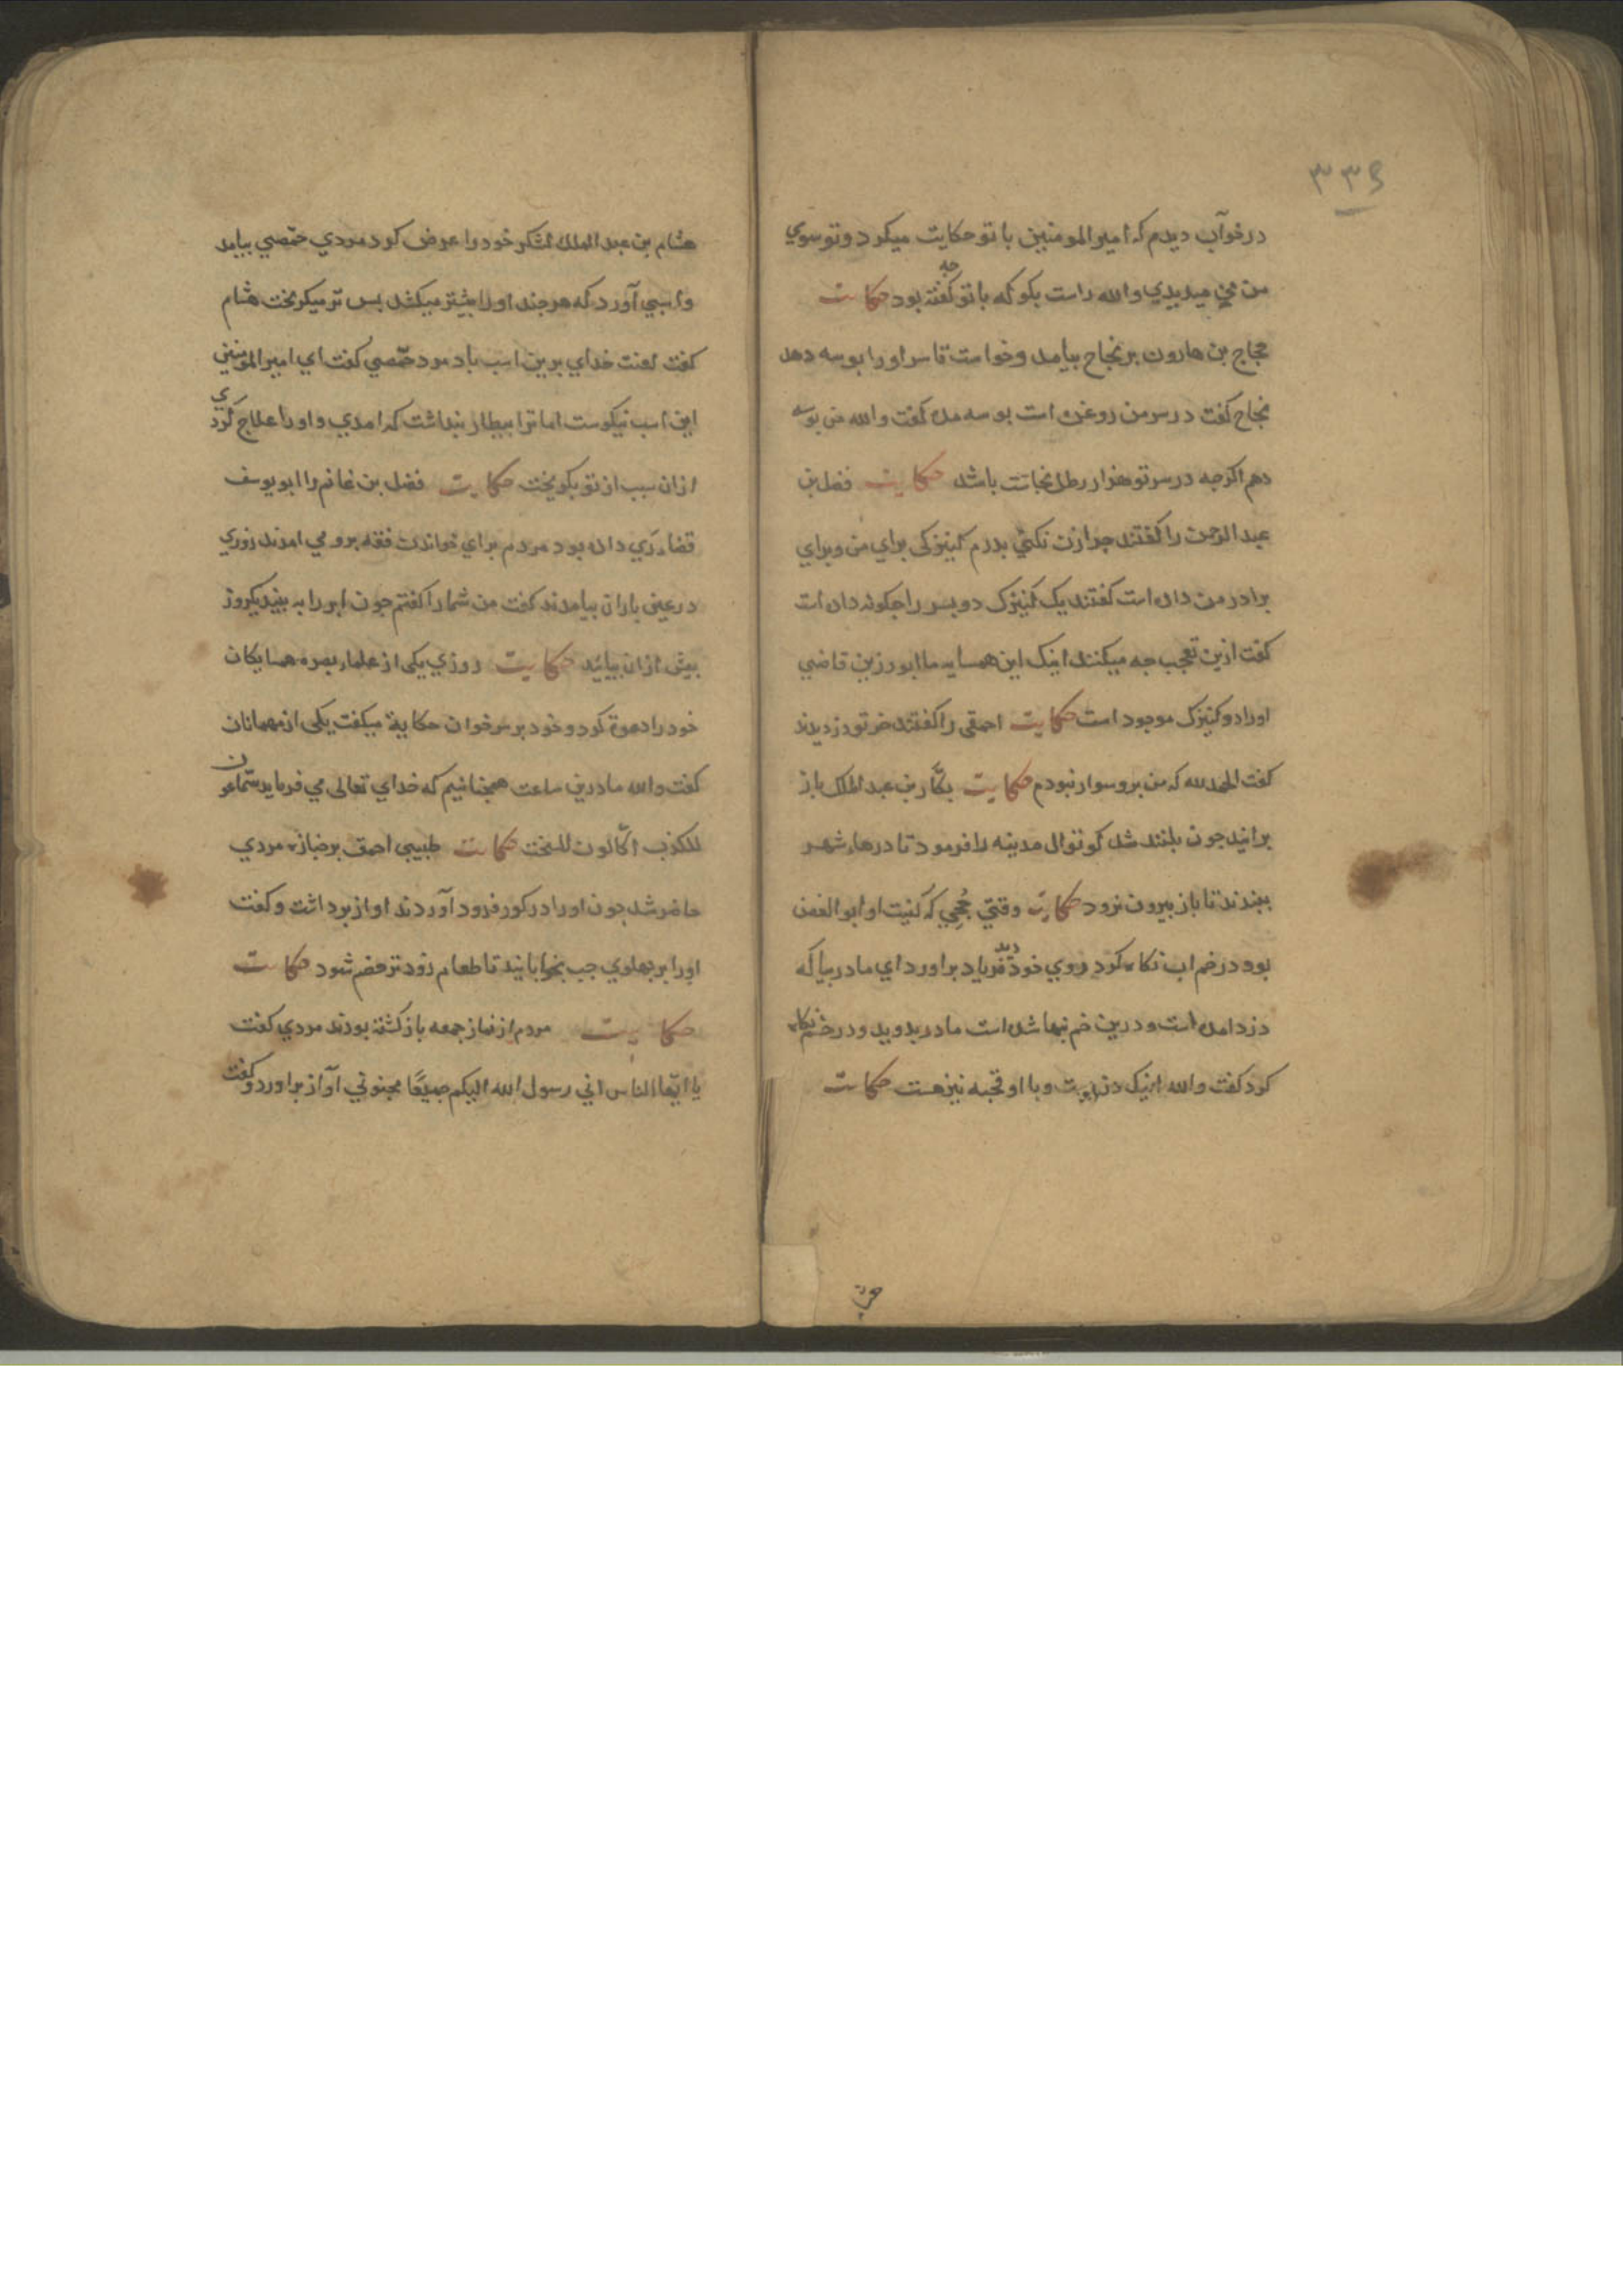 ۳۳۹
در خوآب دیدم که امیر المومنین با تو حکایت میکرد و تو سوي
من می میدیدي والله راست بکو که با تو چه کفته بود حکایت
حجاج بن هارون بر نجاح بیامد وخواست تا سر اورا بوسه دهد
نجاح کفت در سر من روغن است بوسه مده کفت والله من بوسه
دهم اکرجه در سر تو هزار رطل نجاست باشد حکایت فضل بن
عبد الرحمن را کفتند جرا زن نکني بدرم کنیزکی براي من وبراي
برادر من داده است کفتند یک کنیزک دو بسر را جکونه داده است
کفت ازین تعجب جه میکنند اینک این همسایه ما ابو رزین قاضي
اورا دو کنیزک موجود است حکایت احمقی را کفتند خر تو دزدیدند
کفت الحمد لله که من برو سوار نبودم حکایت بکّار بن عبد الملک باز
برانید جون بلند شد کوتوال مدینه را فرمود تا درهاء شهر
ببندند تا باز بیرون نرود حکایت وقتي جُحِي که کنیت او ابو الغصن
بود در خم اب نکاه کرد روي خود دید فریاد براورد اي مادر بیا که
دزد امده است ودرین خم نهاشده است مادر بدوید ودر خم نکاه
کرد کفت والله اینک دزد است وبا او قحبه نیز هست حکایت
هشام بن عبد الملك لشکر خود را عرض کرد مردي حمّصي بیامد
واسبي آورد که هرجند اورا بیشتر میکشد بس تر میکریخت هشام
کفت لعنت خداي برین اسب باد مرد حمّصي کفت اي امیر المومنین
این اسب نیکوست اما ترا بیطار بنداشت که امدي واورا علاج کردي
ازان سبب از تو بکریخت حکایت فضل بن غانم را ابو یوسف
قضاء رَي داده بود مردم براي خواندن فقه برو می امدند روزي
در عین باران بیامدند کفت من شما را کفتم جون ابر را به بینید یکروز
بیش ازان بیائید حکایت روزي یکی از علماء بصره همسایکان
خود را دعوة کرد وخود بر سر خوان حکایة میکفت یکی از مهمانان
کفت والله ما درین ساعت همجنانیم که خداي تعالی می فرماید سمّاعون
للکذب اکّالون للسّحت حکایت طبیبی احمق بر جنازه مردي
حاضر شد جون اورا در کور فرود آوردند اواز برداشت وکفت
اورا بر بهلوي جب بخوابانید تا طعام زودتر حضم شود حکایت
حکایت مردم از نماز جمعه باز کشته بودند مردي کفت
یا ایّها الناس اني رسول الله الیکم جمیعًا مجنوني آواز براورد و کفت